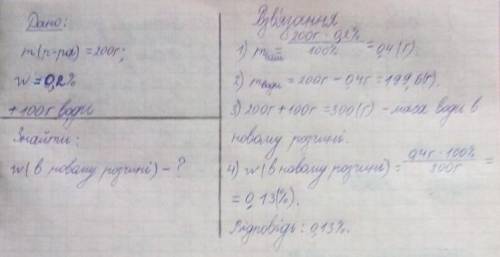 Дано:
m(р-ра) = 200г;
w = 0,2%
+100г води
Знайти:
w(в новому розчині) - ?
Розв'язання
1) m = 200г · 0,2% / 100% = 0,4(г).
2) mводи = 200г - 0,4г = 199,6(г).
3) 200г + 100г = 300(г) - маса води в
новому розчині.
4) w(в новому розчині) = 0,4г · 100% / 300г =
= 0,13(%).
Відповідь: 0,13%.